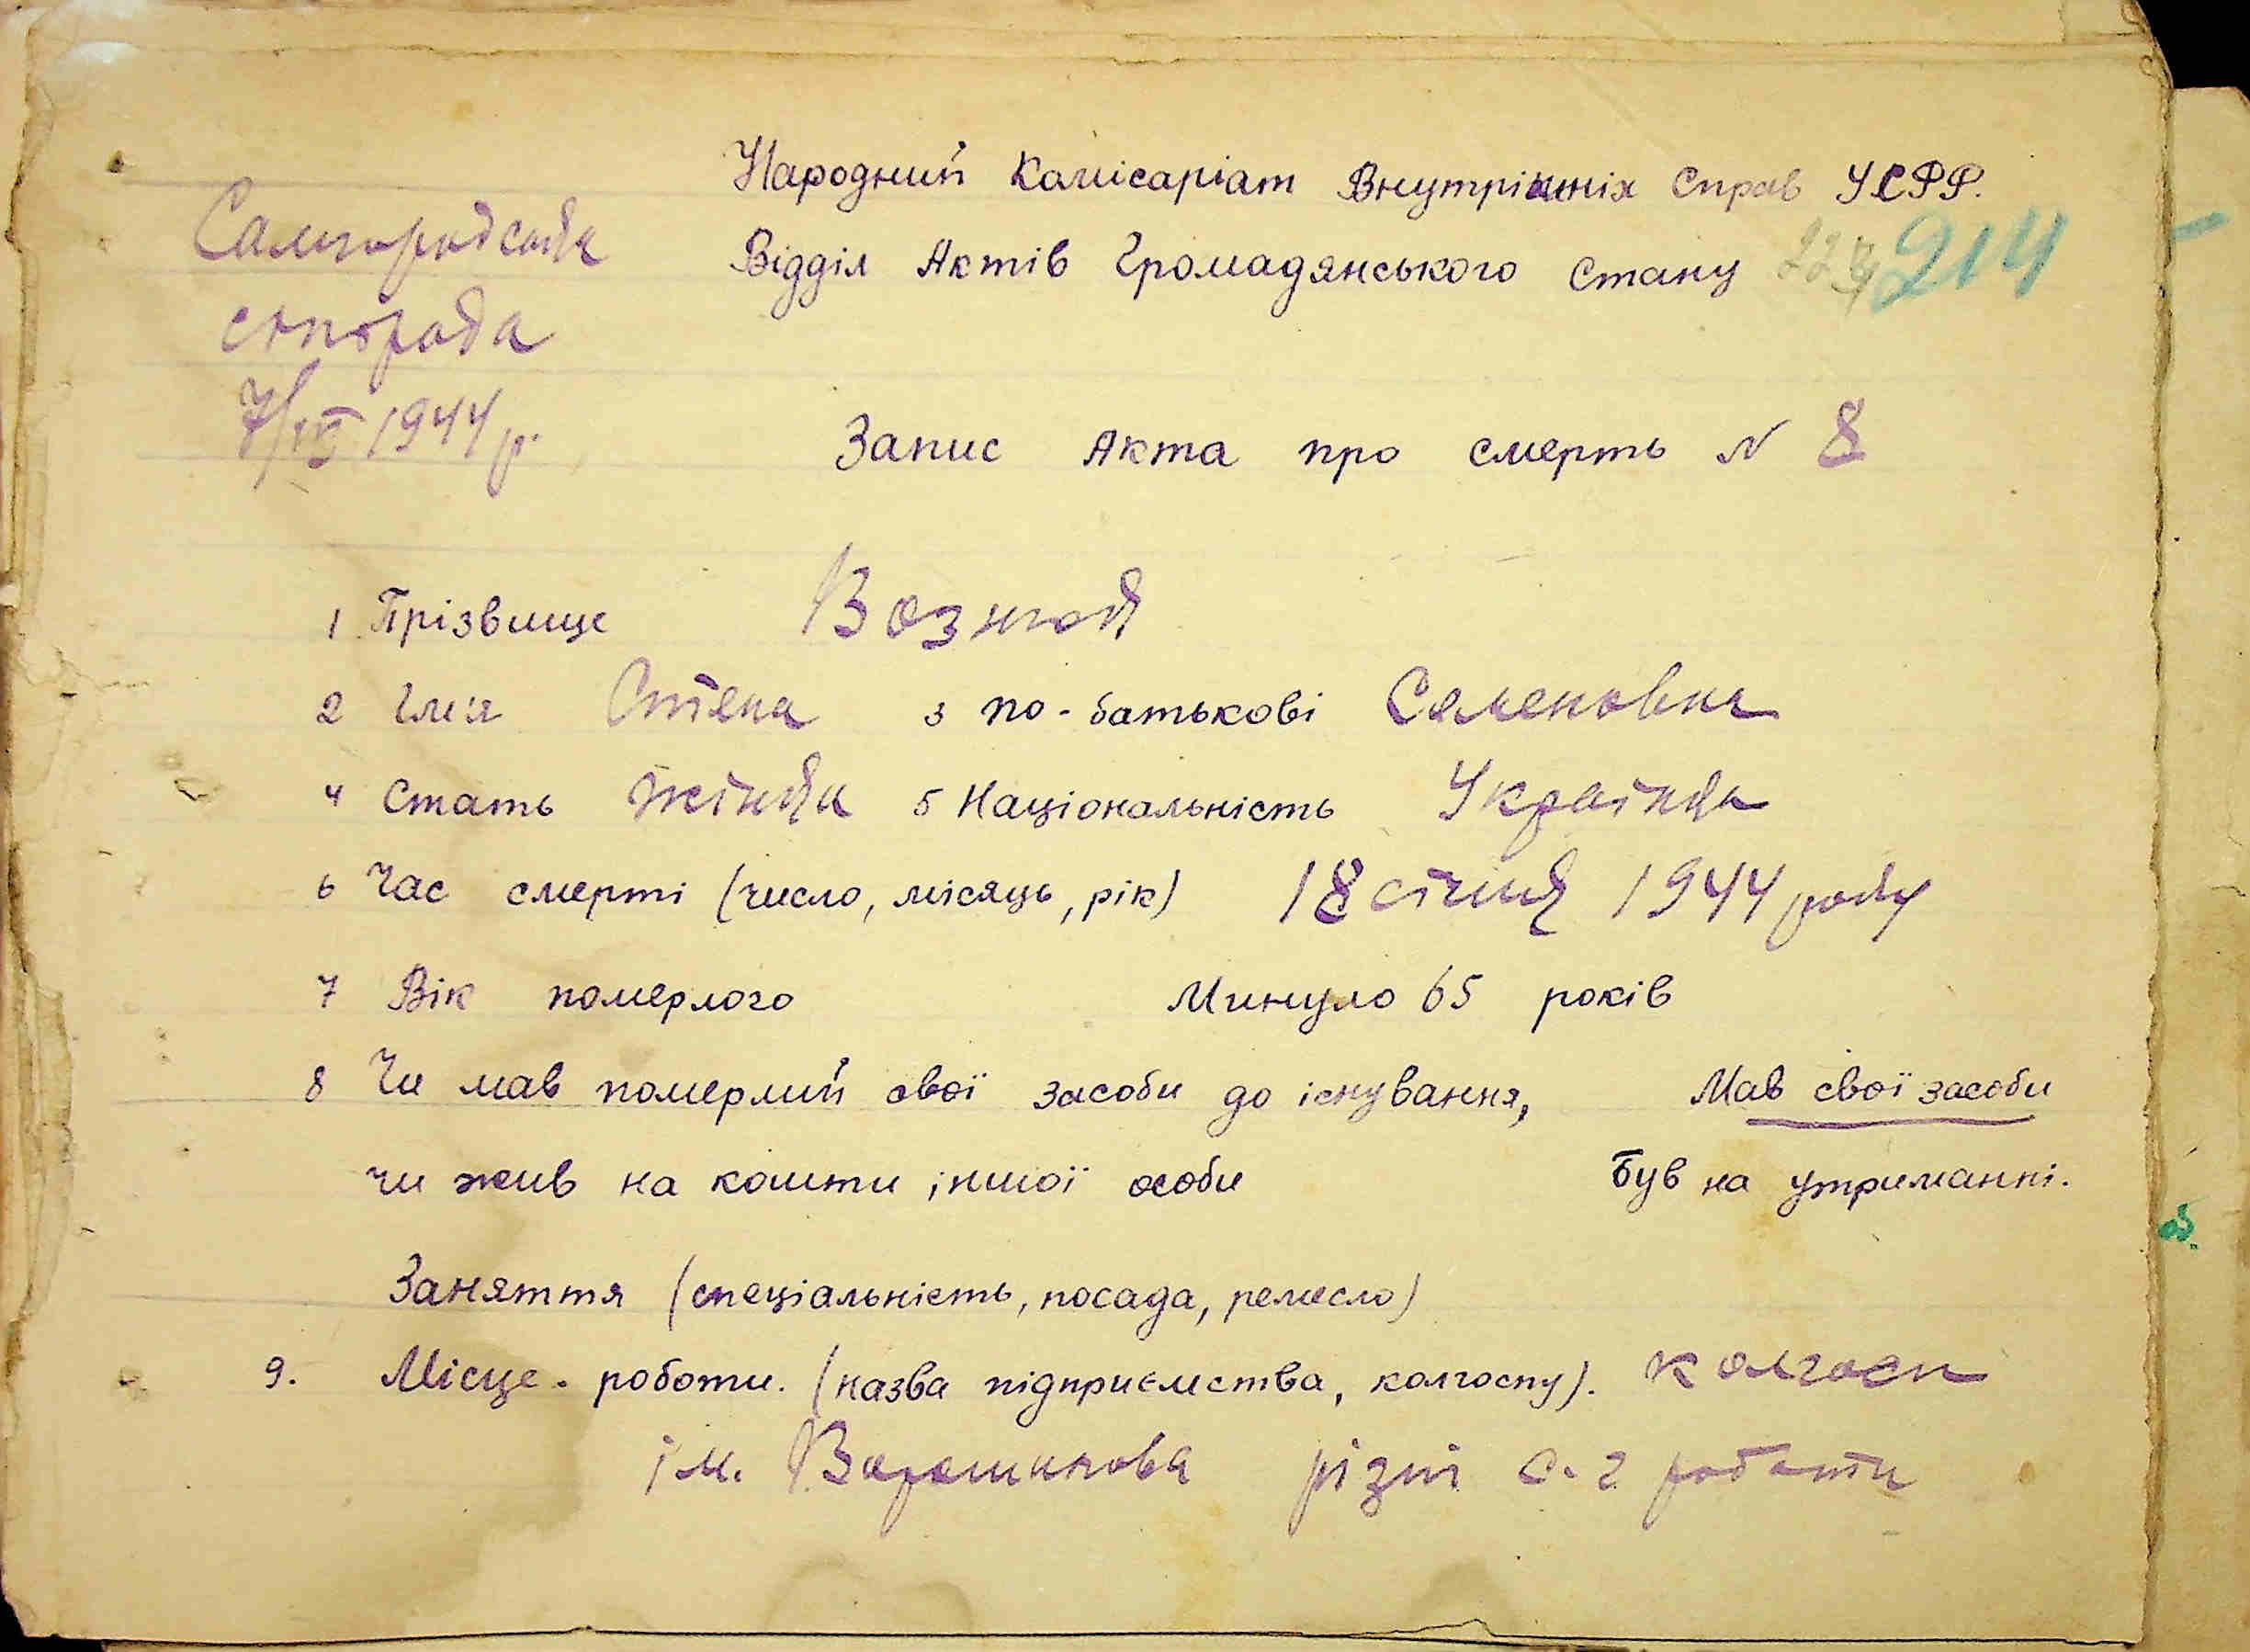 Народний Комісаріат Внутрішніх Справ УСРР.
Відділ Актів Громадянського Стану 214
Самгородська
сільрада
7/IV 1944 р.
Запис Акта про смерть N 8
1 Прізвище Возной
2 Ім'я Степа 3 по-батькові Семеновна
4 Стать жінка 5 Національність Українка
6 Час смерті (число, місяць, рік) 18 січня 1944 року
7 Вік померлого Минуло 65 років
8 Чи мав померлий свої засоби до існування, Мав свої засоби
чи жив на кошти іншої особи Був на утриманні.
Заняття (спеціальність, посада, ремесло)
9. Місце. роботи. (назва підприємства, колгоспу). колгосп
ім. Ворошилова різні с.г роботи